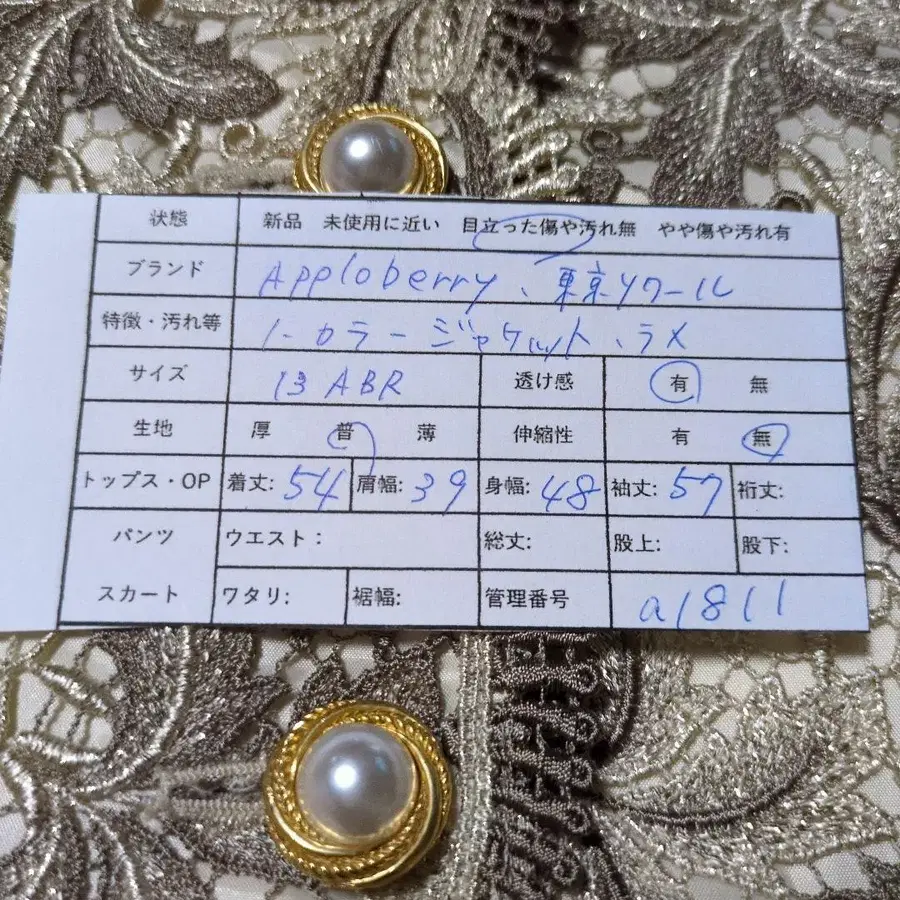 状態 新品 未使用に近い 目立った傷や汚れ無 やや傷や汚れ有
ブランド Apploberry、東京ソワール
特徴・汚れ等 ノーカラージャケット、ラメ
サイズ 13 ABR 透け感 有 無
生地 厚 普 薄 伸縮性 有 無
トップス・OP 着丈: 54 肩幅: 39 身幅: 48 袖丈: 57 裄丈:
パンツ ウエスト: 総丈: 股上: 股下:
スカート ワタリ: 裾幅: 管理番号 a1811